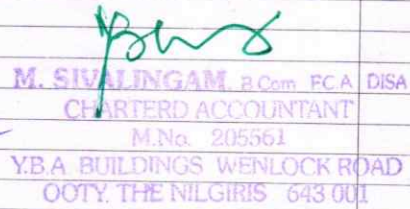 M. SIVALINGAM. B.Com FCA DISA
CHARTERD ACCOUNTANT
M.No. 205561
Y.B.A BUILDINGS WENLOCK ROAD
OOTY. THE NILGIRIS 643 001